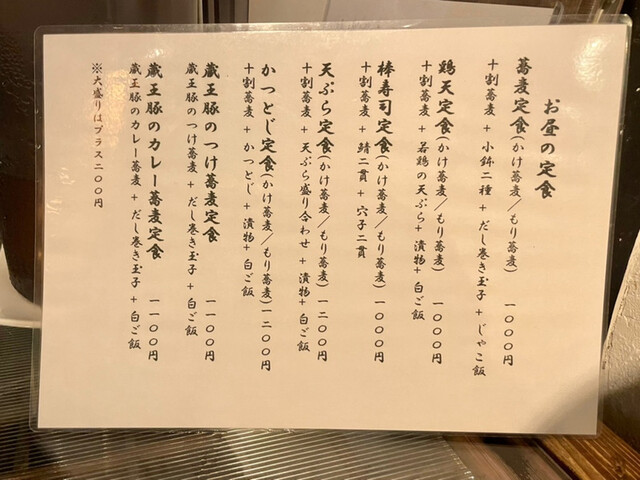 お昼の定食
蕎麦定食(かけ蕎麦/もり蕎麦) 一〇〇〇円
十割蕎麦+小鉢二種+だし巻き玉子+じゃこ飯
鶏天定食(かけ蕎麦/もり蕎麦) 一〇〇〇円
十割蕎麦+若鶏の天ぷら+漬物+白ご飯
棒寿司定食(かけ蕎麦/もり蕎麦) 一〇〇〇円
十割蕎麦+鯖二貫+穴子二貫
天ぷら定食(かけ蕎麦/もり蕎麦) 一二〇〇円
十割蕎麦+天ぷら盛り合わせ+漬物+白ご飯
かつとじ定食(かけ蕎麦/もり蕎麦) 一二〇〇円
十割蕎麦+かつとじ+漬物+白ご飯
蔵王豚のつけ蕎麦定食 一一〇〇円
蔵王豚のつけ蕎麦+だし巻き玉子+白ご飯
蔵王豚のカレー蕎麦定食 一一〇〇円
蔵王豚のカレー蕎麦+だし巻き玉子+白ご飯
※大盛りはプラス二〇〇円